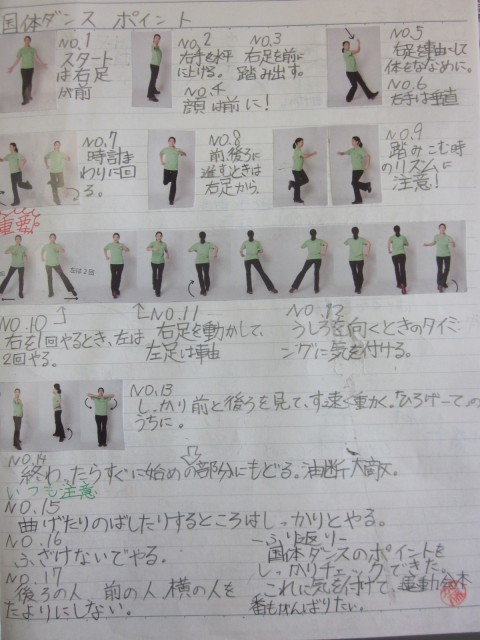 国体ダンス ポイント
NO.1
スタート
は右足
が前
NO.2
右手を水平
に上げる。
NO.3
右足を前に
踏み出す。
NO.4
顔は前に!
NO.5
右足を軸にして
体をななめに。
NO.6
右手は垂直
NO.7
時計ま
わりに回
る。
NO.8
前、後ろに
進むときは
右足から、
NO.9
踏みこむ時
のリズムに
注意!
重要
左は2回
NO.10
右を1回やるとき、左は
2回やる。
NO.11
右足を動かして、
左足は軸
NO.12
うしろを向くときのタイミ
ングに気を付ける。
NO.13
しっかり前と後ろを見て、す速く動かく。ひろげーての
うちに。
NO.14
終わったらすぐに始めの部分にもどる。油断大敵。
いつも注意
NO.15
曲げたりのばしたりするところはしっかりとやる。
NO.16
ふざけないでやる。
NO.17
後ろの人、前の人、横の人を
たよりにしない。
ーふり返りー
国体ダンスのポイントを
しっかりチェックできた。
これに気を付けて、運動会本
番もがんばりたい。